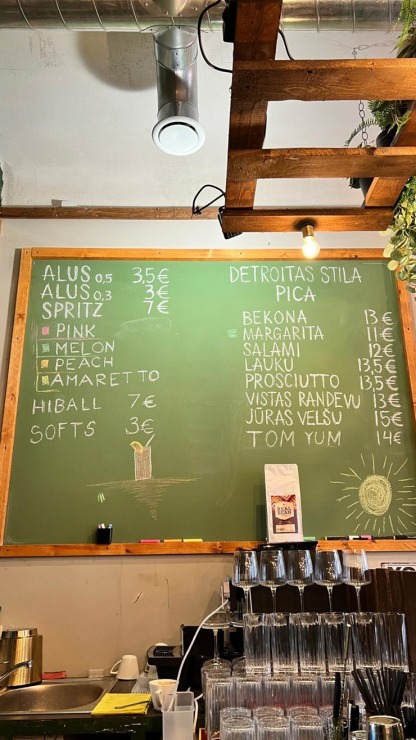 ALUS 0,5 3,5€
ALUS 0,3 3€
SPRITZ 7€
PINK
MELON
PEACH
AMARETTO
HIBALL 7€
SOFTS 3€
DETROITAS STILA
PICA
BEKONA 13€
MARGARITA 11€
SALAMI 12€
LAUKU 13,5€
PROSCIUTTO 13,5€
VISTAS RANDEVU 13€
JŪRAS VELŠU 15€
TOM YUM 14€